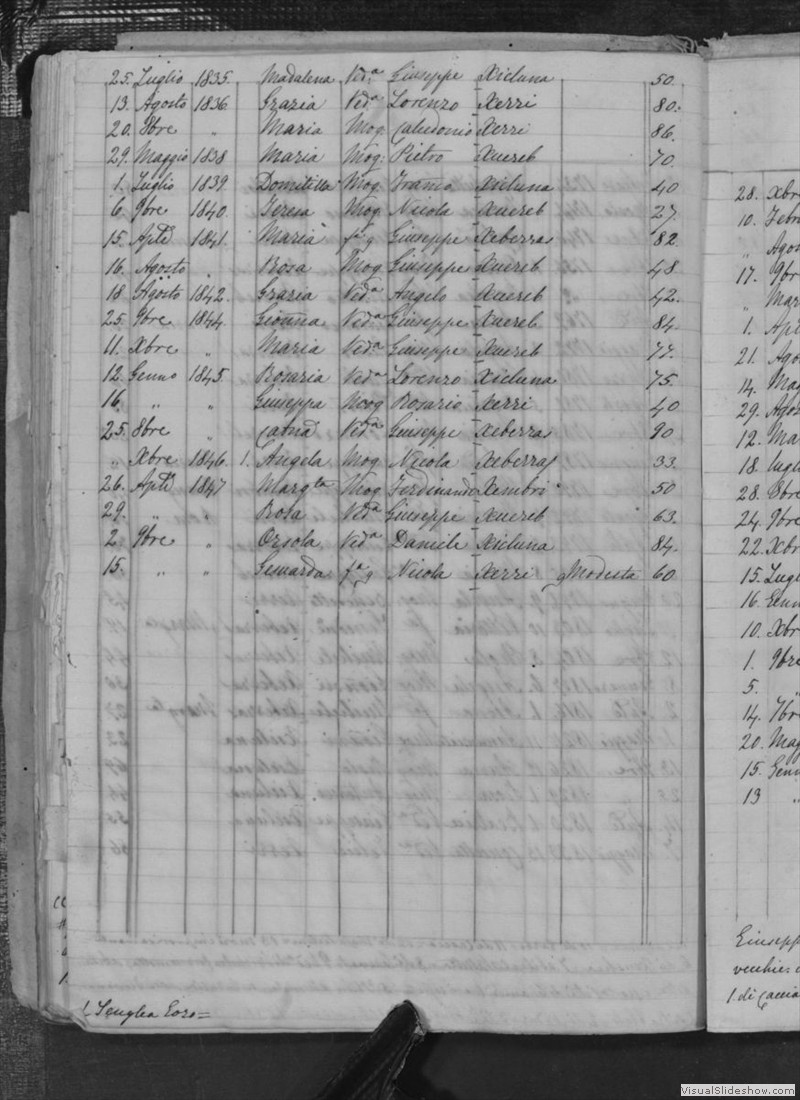 25. Luglio 1835. Madalena Ved.a Giuseppe Xicluna 50.
13. Agosto 1836. Grazia Ved.a Lorenzo Xerri 80.
20. 8bre " Maria Mog. Xerri 86.
29. Maggio 1838 Maria Mog. Pietro Xuereb 70
1. Luglio 1839. Domitilla Mog. Xicluna 40
6. 9bre 1840. Teresa Mog. Nicola Xuereb 27.
15. Aple 1841. Maria fa q Giuseppe Xeberras 82.
16. Agosto " Rosa Mog. Giuseppe Xuereb 48.
18 Agosto 1842. Grazia Ved.a Angelo Xuereb 42.
25. 9bre 1844. Gionna Ved.a Giuseppe Xuereb 84.
11. Xbre " Maria Ved.a Giuseppe Xuereb 77.
12. Genno 1845. Rosaria Ved.a Lorenzo Xicluna 75.
16. " " Giuseppa Mog Rosario Xerri 40
25. 8bre " Catna Ved.a Giuseppe Xeberras 90
" Xbre 1846. 1. Angela Mog. Nicola Xeberras 33.
26. Aple 1847 Margta Mog Ferdinando Xembri 50
29. " " Rosa Ved.a Giuseppe Xuereb 63.
2. 9bre " Orsola Ved.a Daniele Xicluna 84.
15. " " Genuarda fa q Nicola Xerri q Modesta 60
1 Senglea
28. Xbre
10. Febr
" Agos
17. 9bre
" Mar
1. Apr
21. Ago
14. Mag
29. Agos
12. Ma
18. lugl
28. 8bre
24. 9bre
22. Xbr
15. Lugl
16. Genn
10. Xbr
1. 9bre
5. "
14. 7br
20. Mag
15. Genn
13 "
Giusepp
vecchi
1. di
VisualSlideshow.com